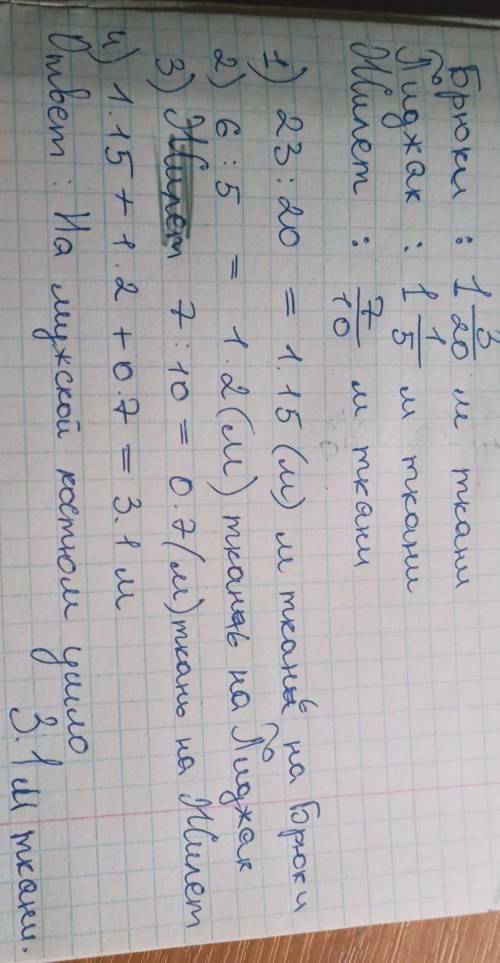 Брюки : 1 3/20 м ткани
Пиджак : 1 1/5 м ткани
Жилет : 7/10 м ткани
1) 23:20 = 1.15 (м) м ткань на Брюки
2) 6:5 = 1.2 (м) ткань на Пиджак
3) Жилет 7:10 = 0.7 (м) ткань на Жилет
4) 1.15 + 1.2 + 0.7 = 3.1 м
Ответ : На мужской костюм ушло
3.1 м ткани.